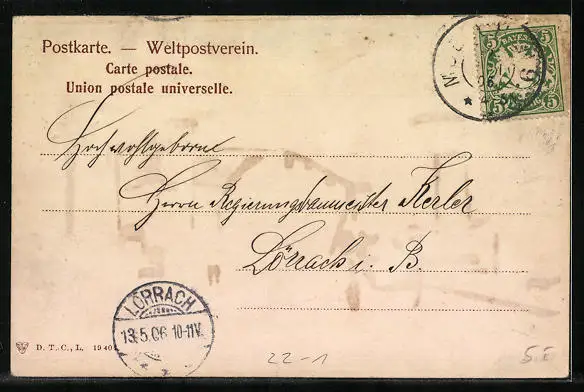 Postkarte. — Weltpostverein.
Carte postale.
Union postale universelle.
5 BAYERN 5
5 5
Hochwohlgeborne
Herrn Regierungsbaumeister Kerler
Lörrach i. B.
LÖRRACH
13.5.06 10-11V.
D. T. C., L.
22-1
5.I